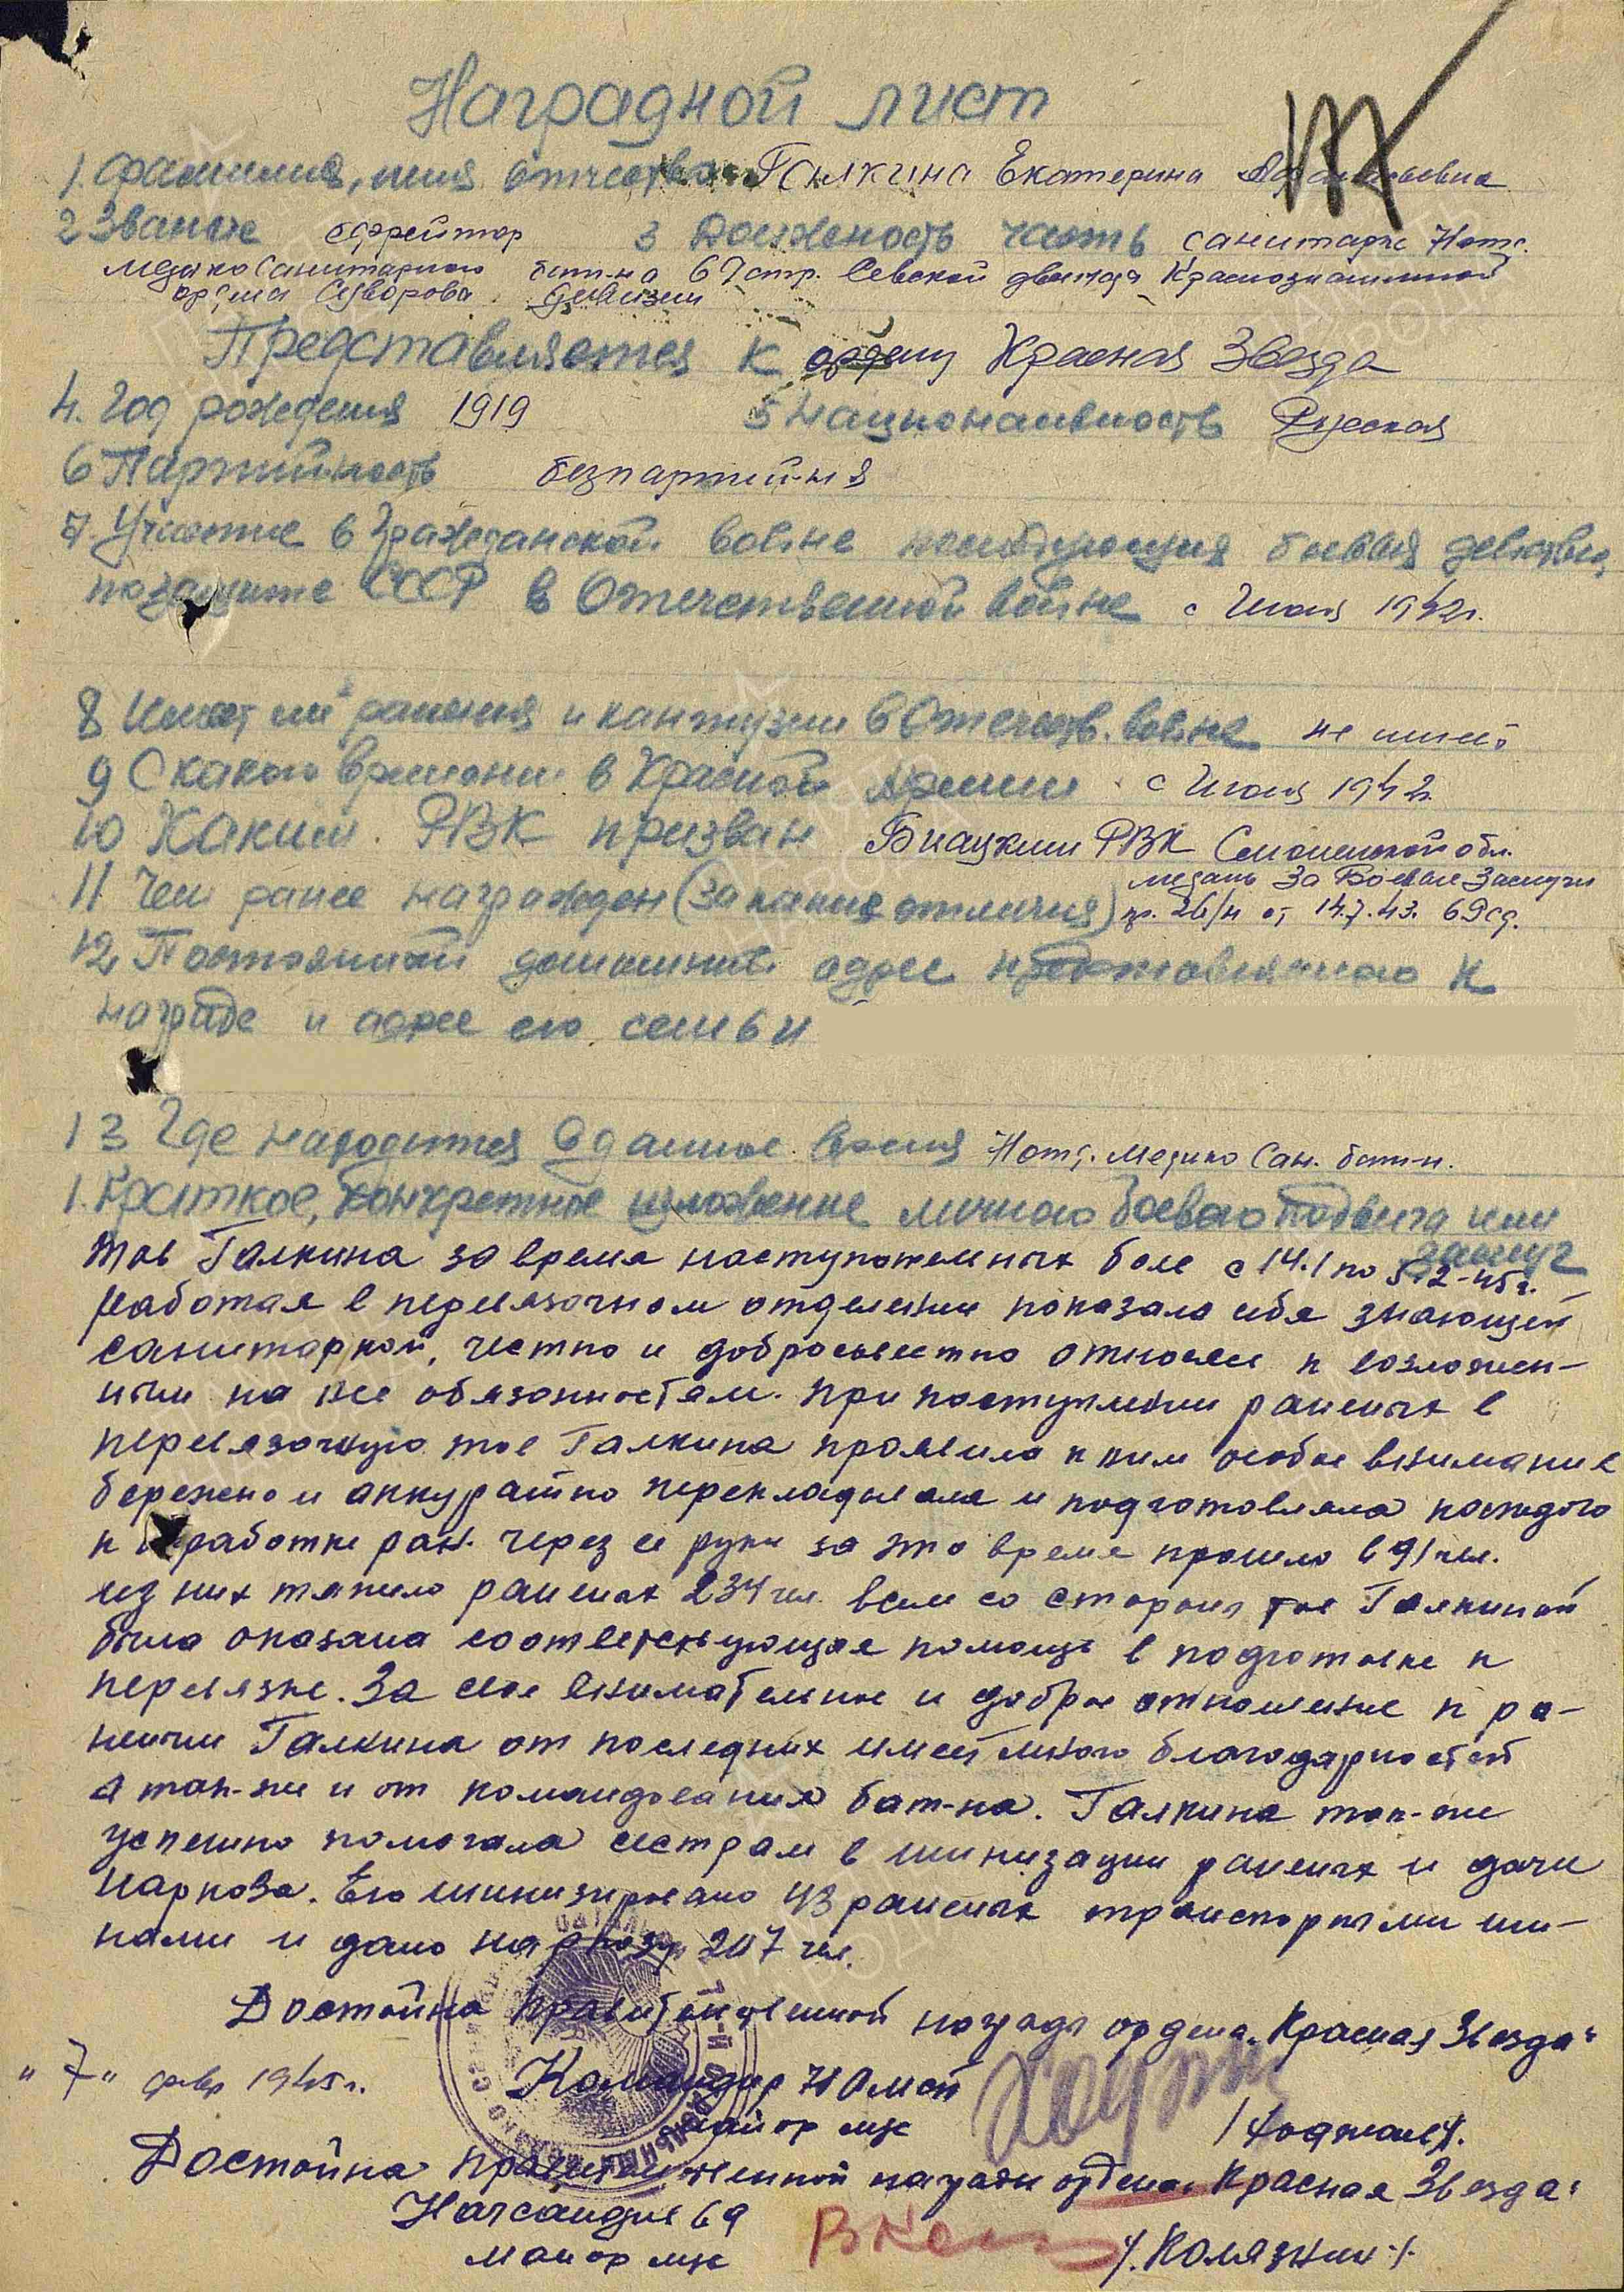 Наградной лист
1. Фамилия, имя отчество Галкина Екатерина
2 Звание ефрейтор 3 Должность часть санитарка 7 отд.
медикосанитарного бат-на 69 стр. Севской дважды Краснознаменной
ордена Суворова дивизии
Представляется к ордену Красная Звезда
4. Год рождения 1919 5 Национальность Русская
6 Партийность безпартийня
7. Участие в Гражданской войне последующия боевыя действия,
по защите СССР в Отечественной войне с Июля 1942г.
8 Имеет ли ранения и кантузии в Отечеств. войне не имеет
9 С какого времени в Красной Армии с Июля 1942г.
10 Каким РВК призван РВК Смоленской обл.
11 Чем ранее награжден (за какие отличия) медаль За Боевые Заслуги
пр. 26/н от 14.7.43. 69сд.
12 Постоянный домашний адрес представляемого к
награде и адрес его семьи
13 Где находится в данное время 7 отд. медико Сан. бат-н.
1. Краткое, конкретное изложение личного боевого подвига или
заслуг
Тов Галкина за время наступательных боев с 14.1 по 5.2-45г.
работая в перевязочном отделении показала себя знающей
санитаркой, честно и добросовестно относясь к возложен-
ным на нее обязанностям. При поступлении раненых в
перевязочную тов Галкина проявила к ним особое внимание
бережно и аккуратно перекладывала и подготовляла каждого
к обработке ран. Через ее руки за это время прошло 691 чел.
из них тяжело раненых 234 чел. всем со стороны тов Галкиной
была оказана соответствующая помощь в подготовке к
перевязке. За свое внимательное и доброе отношение к ра-
неным Галкина от последних имеет много благодарностей
а так-же и от командования бат-на. Галкина так-же
успешно помогала сестрам в шинизации раненых и дачи
наркоза. Ею шинизировано 43 раненых транспортными ши-
нами и дано наркозу 207 чел.
Достойна правительственной награды ордена „Красная Звезда“
„7“ февр 1945г. Командир 7 ОМСБ
майор м/с
Достойна правительственной награды ордена „Красная Звезда“
Начсандив 69
майор м/с /.Колязник./